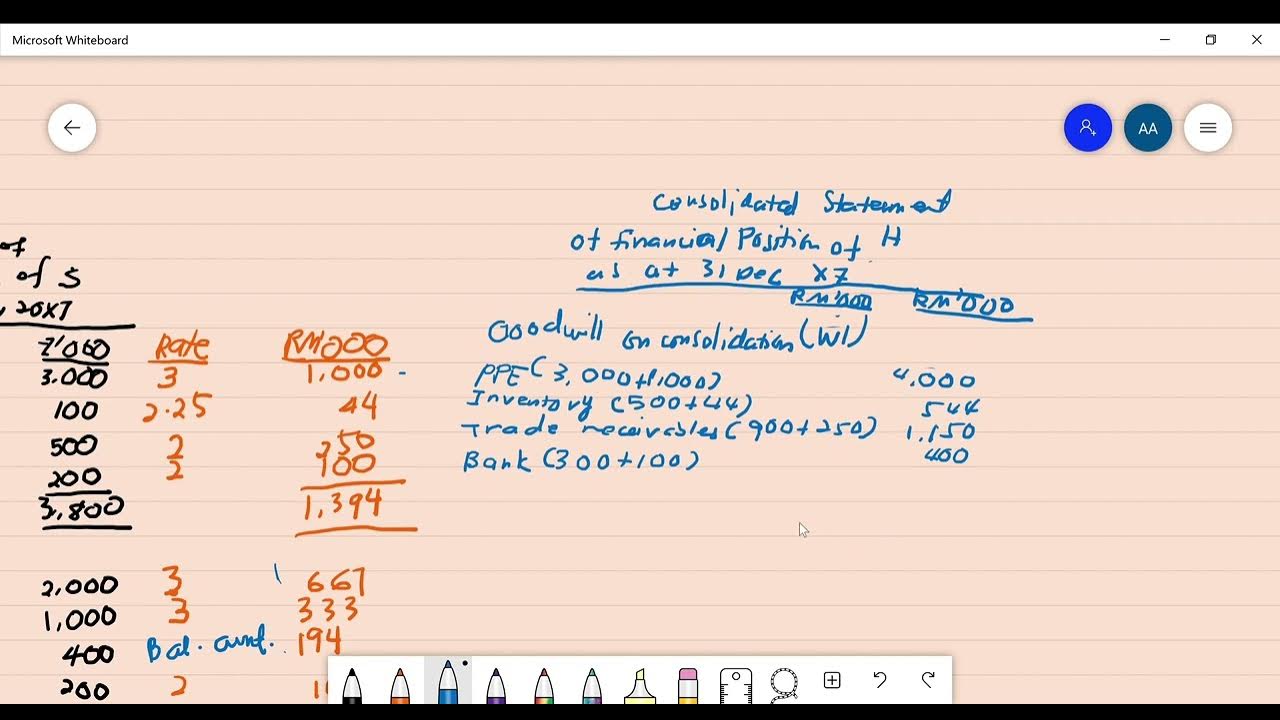 Microsoft Whiteboard
AA
Consolidated Statement
of financial Position of H
as at 31 Dec X7
RM'000 RM'000
Goodwill on consolidation (W1)
PPE (3,000+1,000) 4,000
Inventory (500+44) 544
Trade receivables (900+250) 1,150
Bank (300+100) 400
of
of S
, 20X7
Rate RM'000
3,000 3 1,000
100 2.25 44
500 2 250
200 2 100
3,800 1,394
2,000 3 667
1,000 3 333
400 Bal. amt. 194
200 2